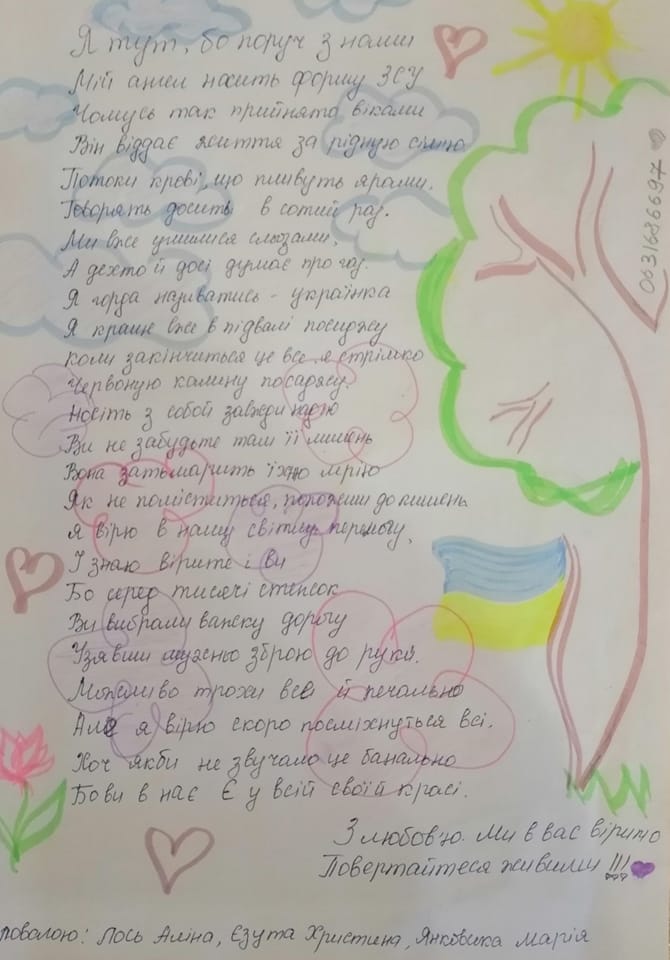 Я тут, бо поруч з нами
Мій ангел носить форму ЗСУ
Чомусь так прийнято віками
Він віддає життя за рідную сімю
Потоки крові, що пливуть ярами.
Говорять досить в сотий раз.
Ми вже умилися сльозами,
А дехто й досі думає про газ.
Я горда називатись - українка
Я краще вже в підвалі посиджу
коли закінчиться це все я стрілько
Червоную калину посаджу.
Носіть з собой завжди надію
Ви не забудьте там її лишень
Вона затьмарить їхню мрію
Як не поміститься, положиш до кишень
Я вірю в нашу світлу перемогу,
І знаю вірите і ви
Бо серед тисячі стежок
Ви вибрали важку дорогу
Узявши мужньо зброю до руки.
Можливо трохи все й печально
Але я вірю скоро посміхнуться всі.
Хоч якби не звучало це банально
Бо ви в нас Є у всій своїй красі.
З любов'ю. Ми в вас віримо
Повертайтеся живими !!!
повагою: Лось Аліна, Єзута Христина, Янковська Марія
0631686697